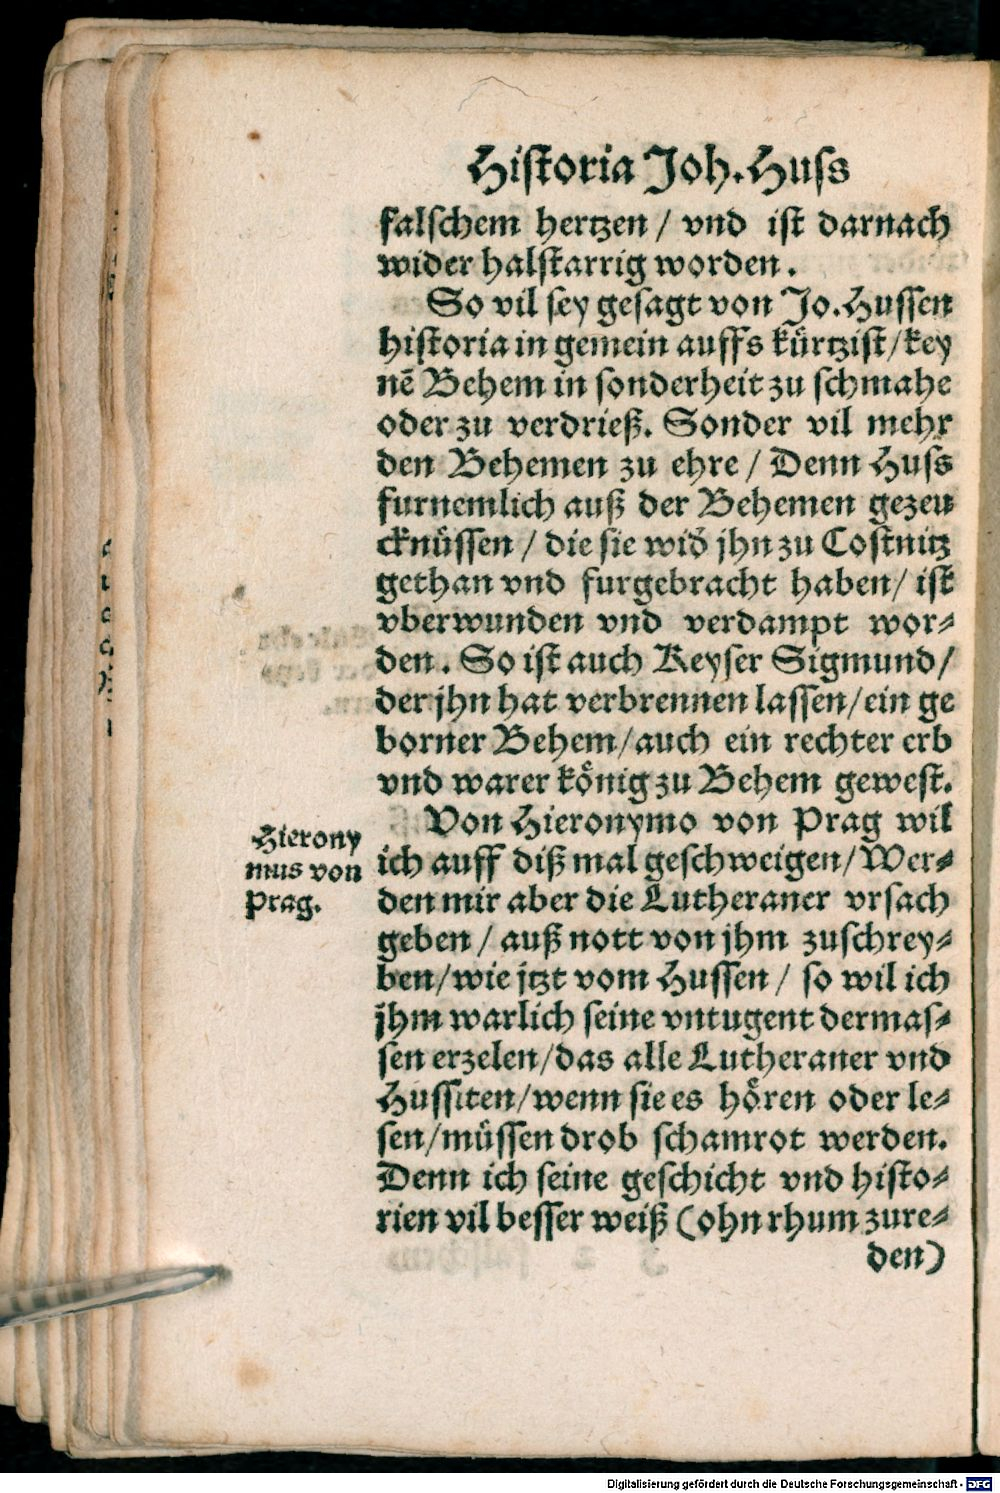 Historia Joh. Huss
falschem hertzen / vnd ist darnach
wider halstarrig worden.
So vil sey gesagt von Jo. Hussen
historia in gemein auffs kürtzist / key
nē Behem in sonderheit zu schmahe
oder zu verdrieß. Sonder vil mehr
den Behemen zu ehre / Denn Huss
furnemlich auß der Behemen gezeu
cknüssen / die sie wid̄ jhn zu Costnitz
gethan vnd furgebracht haben / ist
vberwunden vnd verdampt wor-
den. So ist auch Keyser Sigmund /
der jhn hat verbrennen lassen / ein ge
borner Behem / auch ein rechter erb
vnd warer könig zu Behem gewest.
Von Hieronymo von Prag wil
ich auff diß mal geschweigen / Wer-
den mir aber die Lutheraner vrsach
geben / auß nott von jhm zuschrey-
ben / wie jtzt vom Hussen / so wil ich
jhm warlich seine vntugent dermas-
sen erzelen / das alle Lutheraner vnd
Hussiten / wenn sie es hören oder le-
sen / müssen drob schamrot werden.
Denn ich seine geschicht vnd histo-
rien vil besser weiß (ohn rhum zure-
den)
Hierony
mus von
Prag.
Digitalisierung gefördert durch die Deutsche Forschungsgemeinschaft - DFG